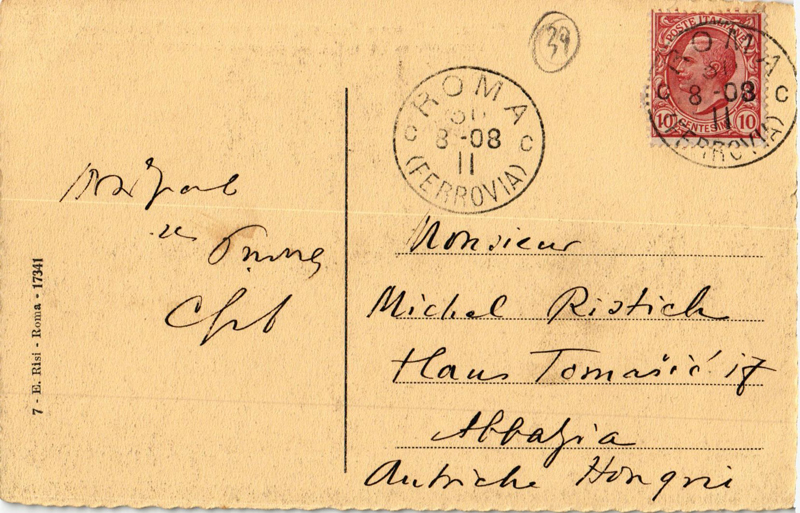 39
ROMA
31
8-08
11
C C
(FERROVIA)
POSTE ITALIANE
10 CENTESIMI 10
ROMA
31
C 8-08 C
11
(FERROVIA)
Monsieur
Michel Ristich
Haus Tomašić 17
Abbazia
Autriche Hongrie
7 - E. Risi - Roma - 17341